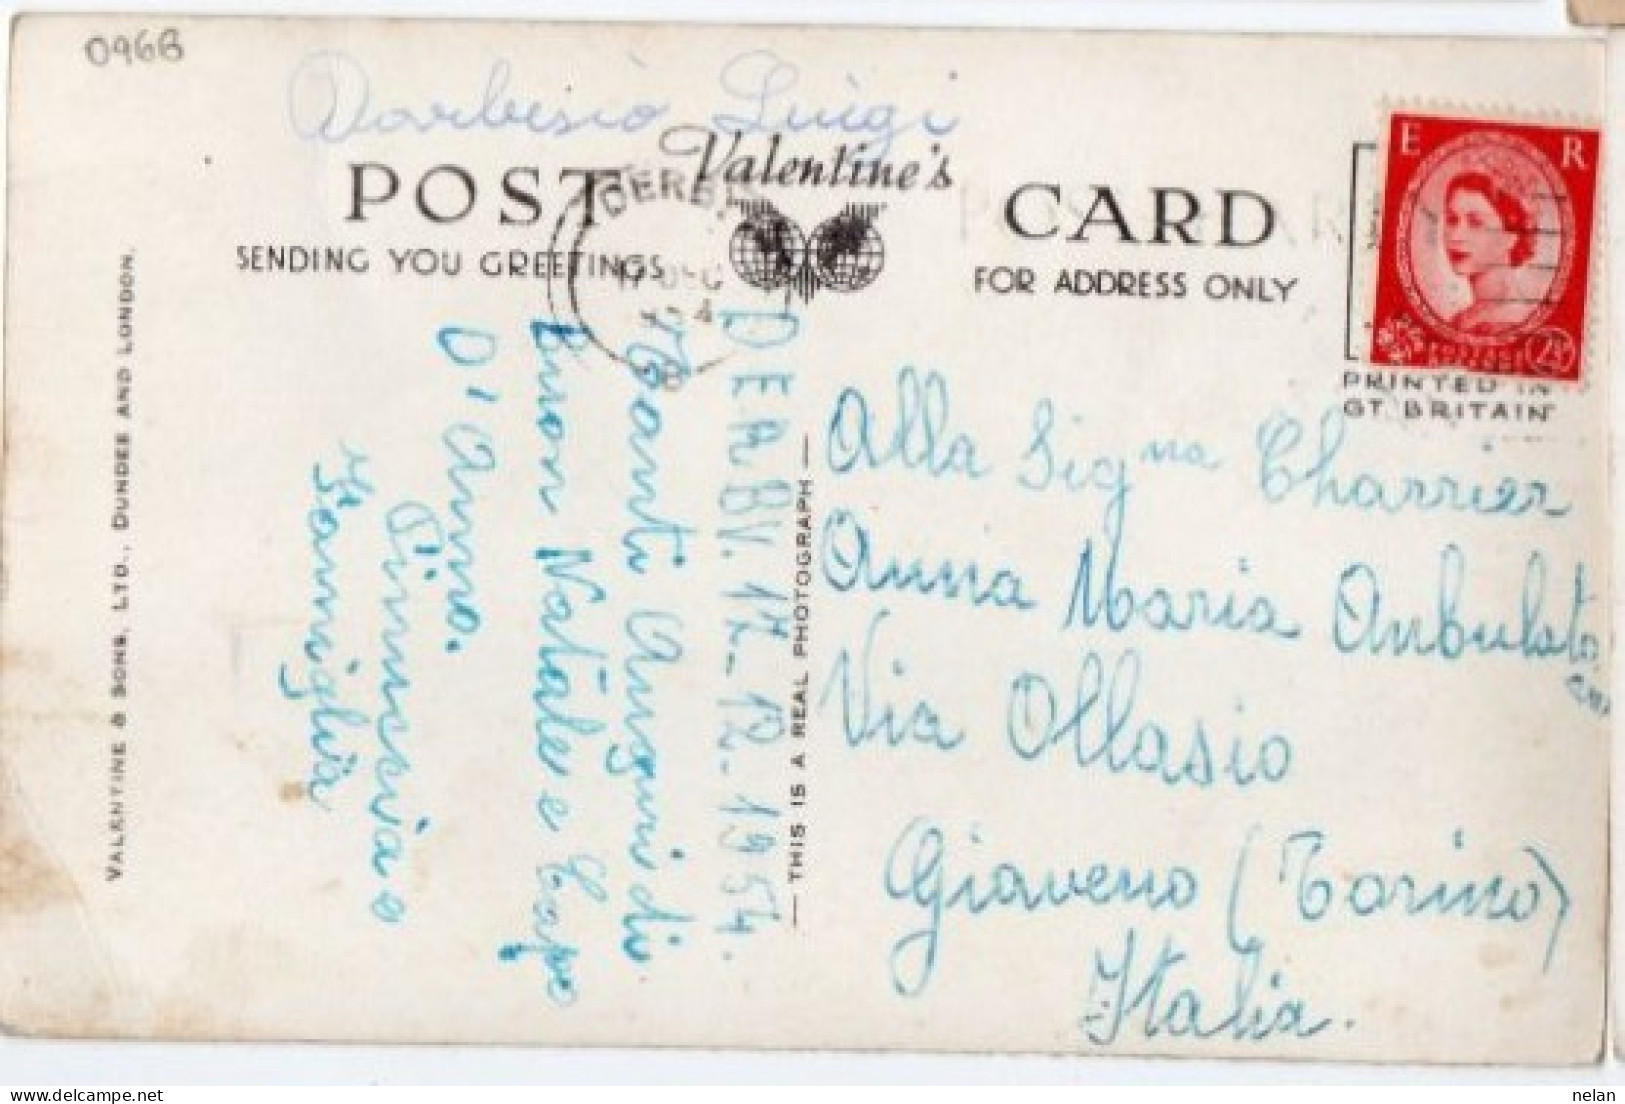 096B
Barbesio Luigi
Valentine's
POST CARD
DERBY
17 DEC
SENDING YOU GREETINGS
FOR ADDRESS ONLY
E R
2½
PRINTED IN
GT. BRITAIN
VALENTINE & SONS, LTD., DUNDEE AND LONDON.
THIS IS A REAL PHOTOGRAPH
DERBY. 17-12-1954.
Tanti Auguri di
Buon Natale e Capo
D'Anno.
Famiglia
Alla Sig.na Charrier
Anna Maria
Via Ollasio
Giaveno (Torino)
Italia.
nelan